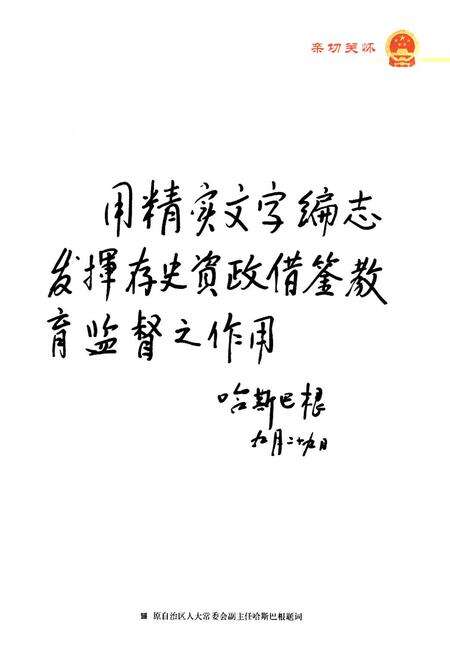 亲切关怀
用精实文字编志
发揮存史資政借鉴教
育监督之作用
哈斯巴根
九月二十九日
原自治区人大常委会副主任哈斯巴根题词